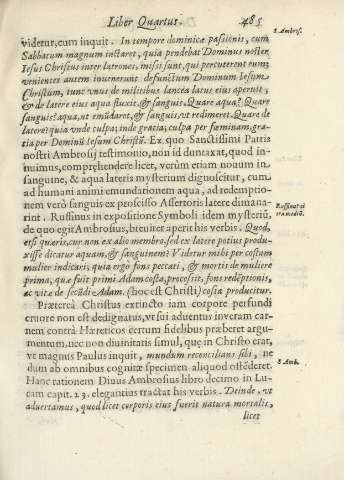 Liber Quartus. 485
videtur, cum inquit. In tempore dominicæ passionis, cum
Sabbatum magnum instaret, quia pendebat Dominus noster
Iesus Christus inter latrones, missi sunt, qui percuterent eum;
venientes autem invenerunt defunctum Dominum Iesum
Christum, tunc vnus de militibus lancea latus eius aperuit,
& de latere eius aqua fluxit, & sanguis. Quare aqua? Quare
sanguis? aqua, vt emũdaret, & sanguis, vt redimeret. Quare de
latere? quia vnde culpa; inde gratia; culpa per fœminam, gra-
tia per Dominũ Iesum Christũ. Ex quo Sanctissimi Patris
nostri Ambrosij testimonio, non id duntaxat, quod in-
nuimus, comprehendere licet, verùm etiam nouum in
sanguine, & aqua lateris mysterium dignoscitur, cum
ad humani animi emundationem aqua, ad redemptio-
nem verò sanguis ex proscisso Assertoris latere dimana-
rint. Ruffinus in expositione Symboli idem mysteriũ,
de quo egit Ambrosius, breuiter aperit his verbis. Quod,
etsi quæris, cur non ex alio membro, sed ex latere potius produ-
xisse dicatur aquam, & sanguinem? Videtur mihi per costam
mulier indicari, quia ergo fons peccati, & mortis de muliere
prima, quæ fuit primi Adam costa, processit, fons redẽptionis,
ac vitæ de secũdi Adam (hoc est Christi) costa producitur.
Prætereà Christus extincto iam corpore perfundi
cruore non est dedignatus, vt sui aduentus in veram car-
nem contrà Hæreticos certum fidelibus præberet argu-
mentum, nec non diuinitatis simul, quæ in Christo erat,
vt magnus Paulus inquit, mundum reconcilians sibi, ne
dum ab omnibus cognitæ specimen aliquod ostẽderet.
Hanc rationem Diuus Ambrosius libro decimo in Lu-
cam capit. 23. elegantius tractat his verbis. Deinde, vt
aduertamus, quod licet corporis eius fuerit natura mortalis,
licet
S Ambros.
S Amb.